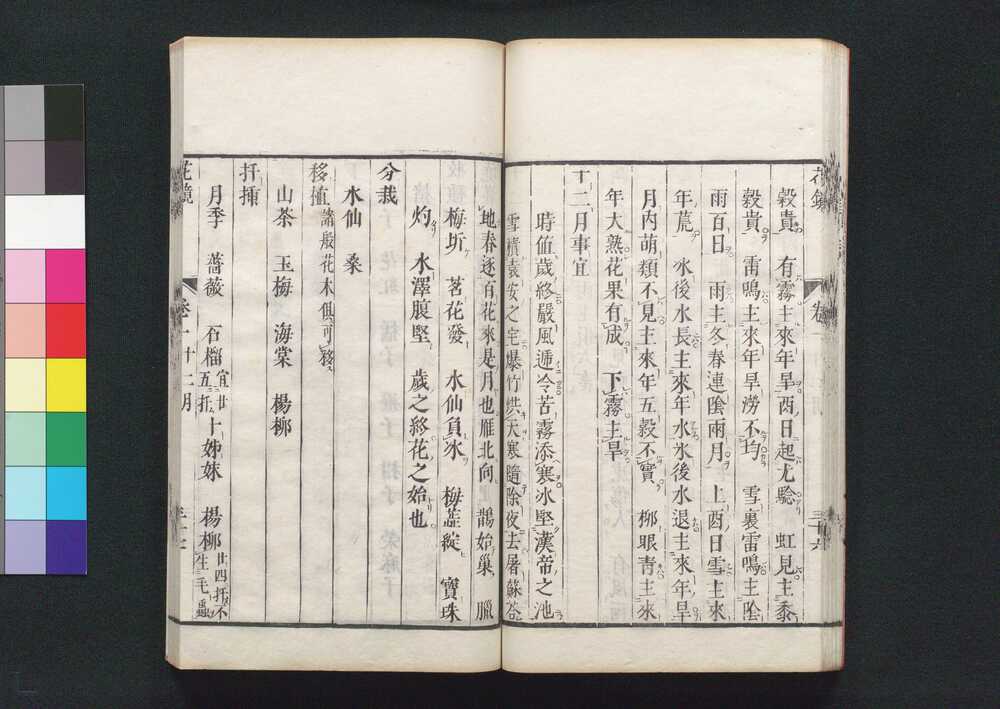 花鏡
卷一
三十六
穀貴 有霧主來年旱酉日起尤騐 虹見主黍
穀貴 雷鳴主來年旱澇不均 雪裏雷鳴主陰
雨百日 雨主冬春連陰雨月 上酉日雪主來
年荒 冰後水長主來年水冰後水退主來年旱
月內萌類不見主來年五穀不實 柳眼青主來
年大熟花果有成 下霧主旱
十二月事宜
時值歲終嚴風遞冷苦霧添寒冰堅漢帝之池
雪積袁安之宅爆竹烘天寒隨除夜去屠蘇
地春逐百花來是月也雁北向 鵲始巢 臘
梅坼 茗花發 水仙負冰 梅蕋綻 寶珠
灼 水澤腹堅 歲之終花之始也
分栽
水仙 桑
移植 諸般花木俱可移
山茶 玉梅 海棠 楊柳
扦揷
月季 薔薇 石榴 宜廿五扦 十姊妹 楊柳 廿四扦不生毛蟲
花鏡
卷一 十二月